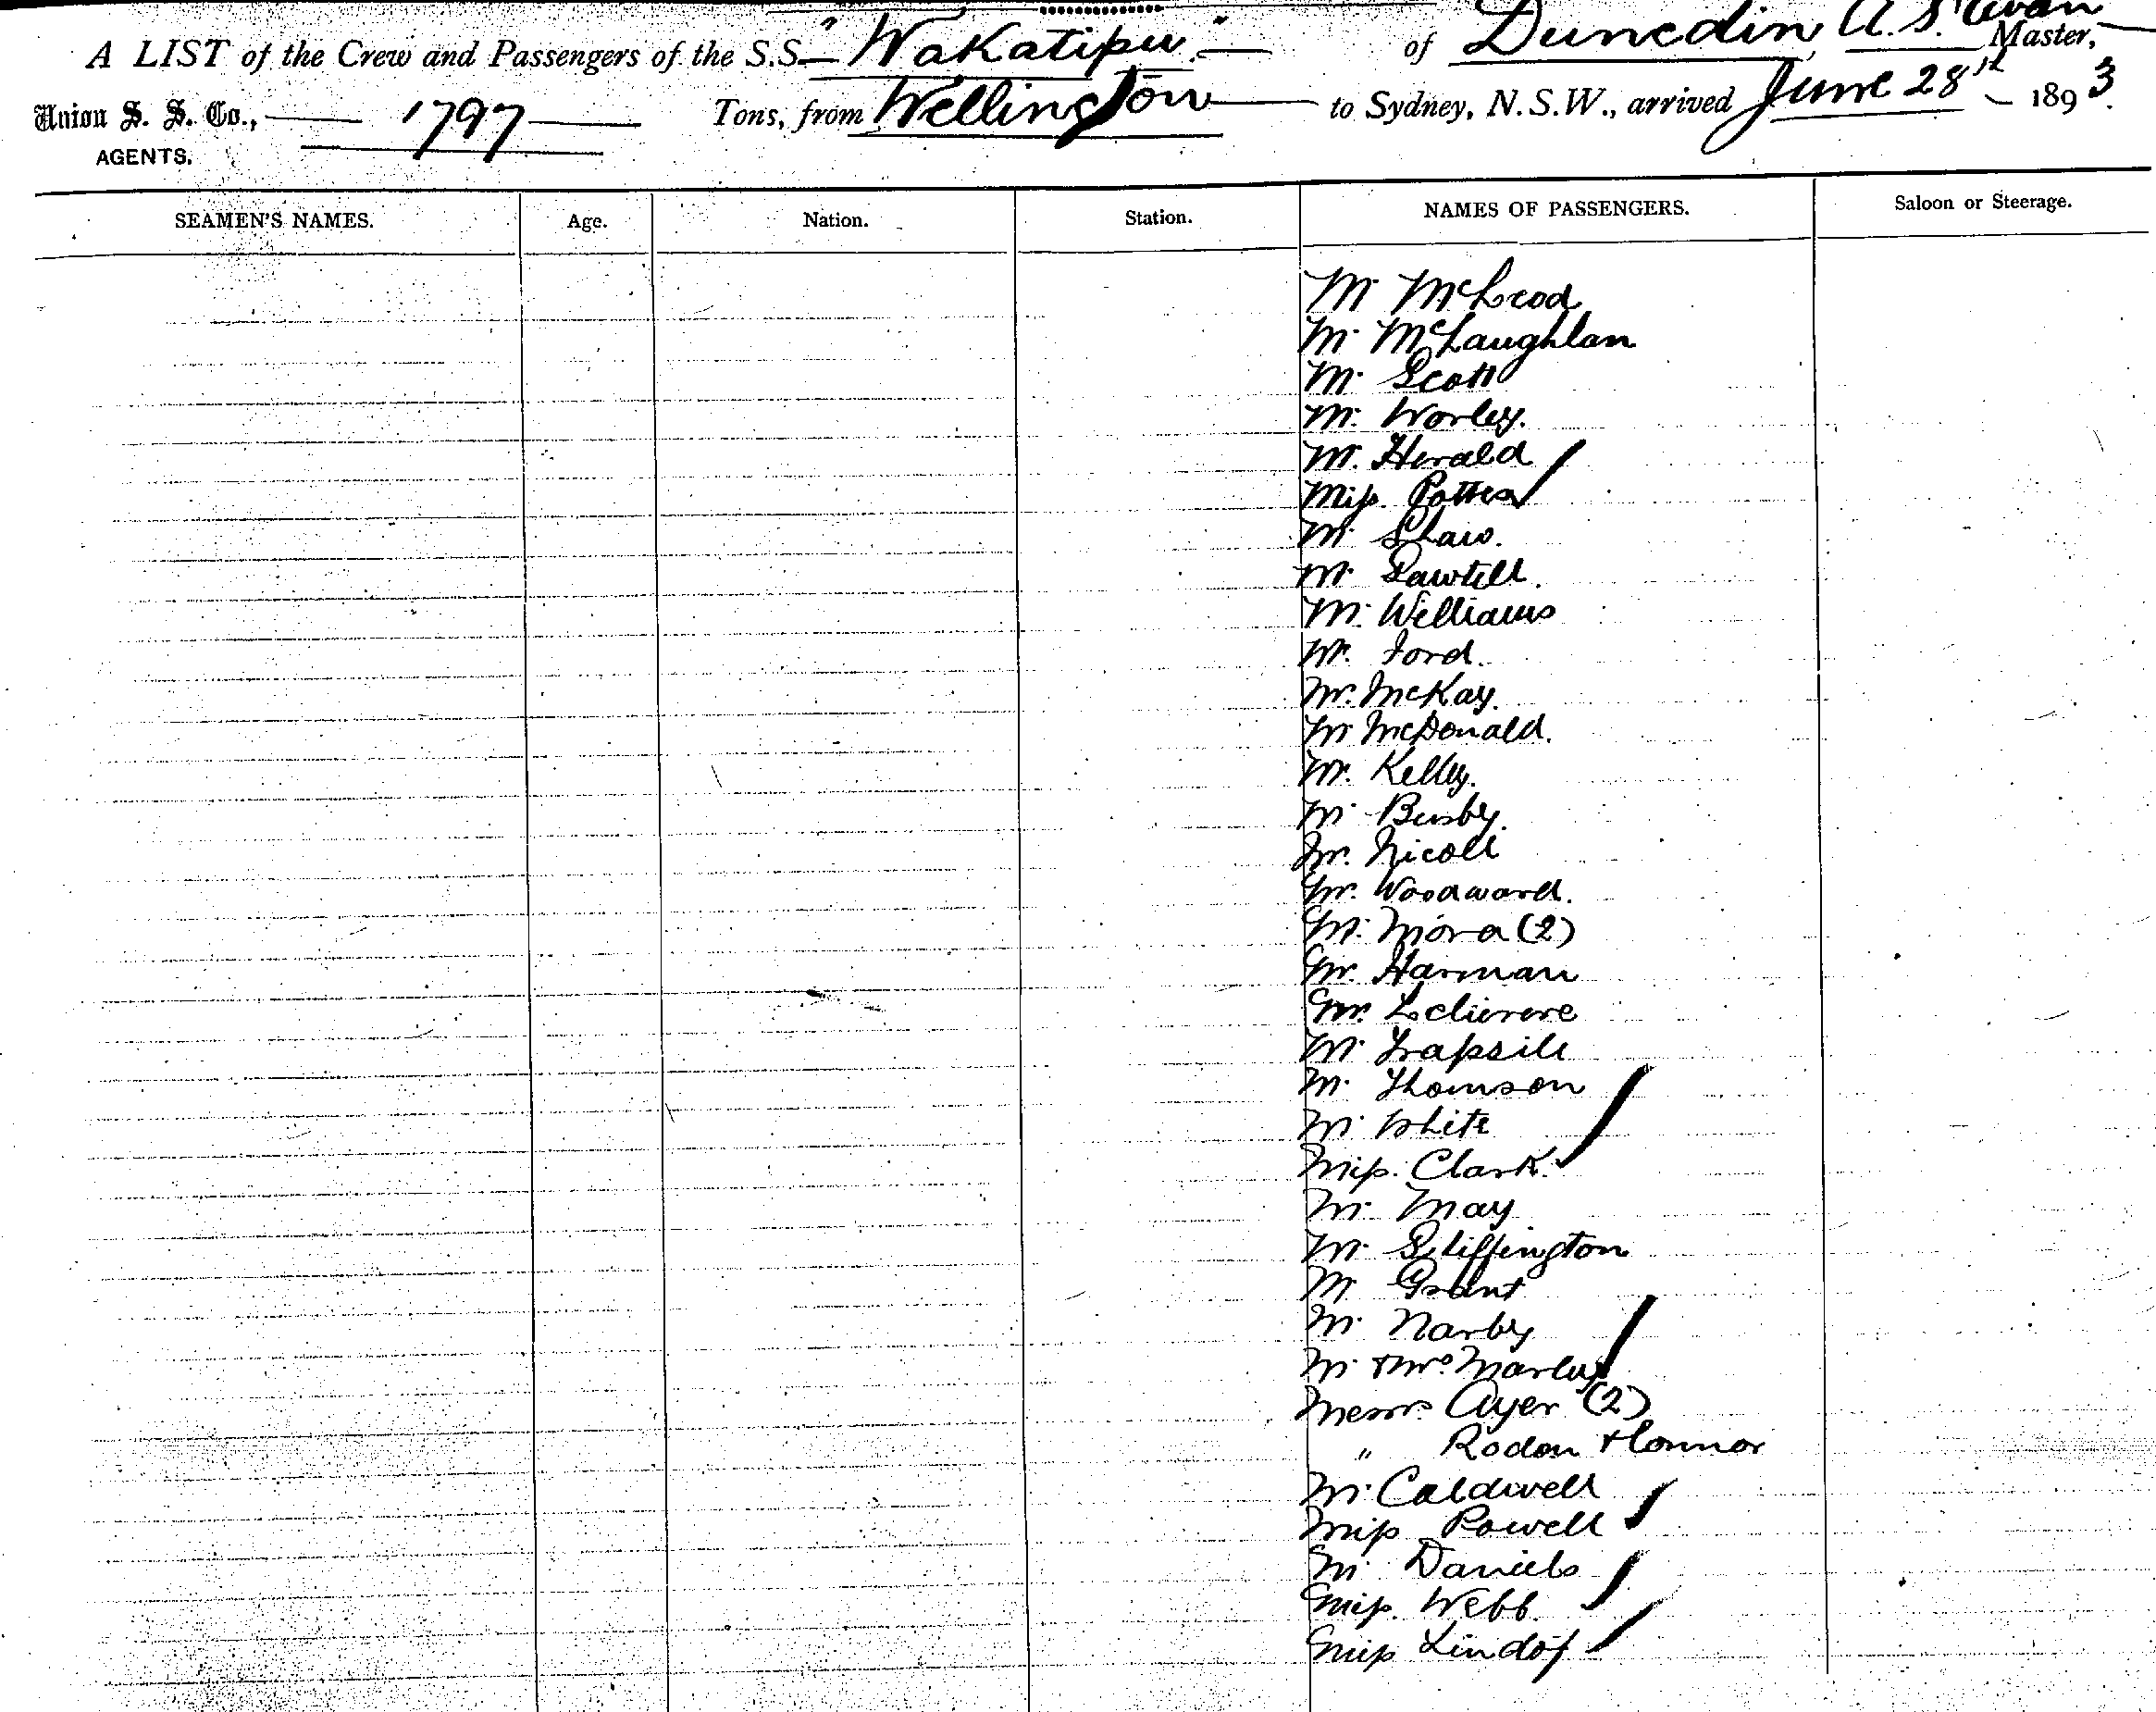 A LIST of the Crew and Passengers of the S.S. "Wakatipu" of Dunedin, A. S. Master,
Union S. S. Co., 1797 Tons, from Wellington to Sydney, N.S.W., arrived June 28th 1893.
AGENTS.
SEAMEN'S NAMES. Age. Nation. Station. NAMES OF PASSENGERS. Saloon or Steerage.
Mr McLeod
Mr McLaughlan
Mr Scott
Mr Worley.
Mr. Herald
Miss Potter
Mr Shaw.
Mr Sawtell.
Mr Williams
Mr. Ford.
Mr. McKay.
Mr McDonald.
Mr. Kelly.
Mr Busby.
Mr. Nicoll
Mr. Woodward.
Mr. Mora (2)
Mr. Harman
Mr.
Mr
Mr Thomson
Mr White
Miss. Clark.
Mr. May
Mr
Mr Grant
Mr Narby
Mr & Mrs Marley
Messrs Ayer (2)
" Roden & Connor
Mr Caldwell
Miss Powell
Mr Daniels
Miss. Webb.
Miss Lindof